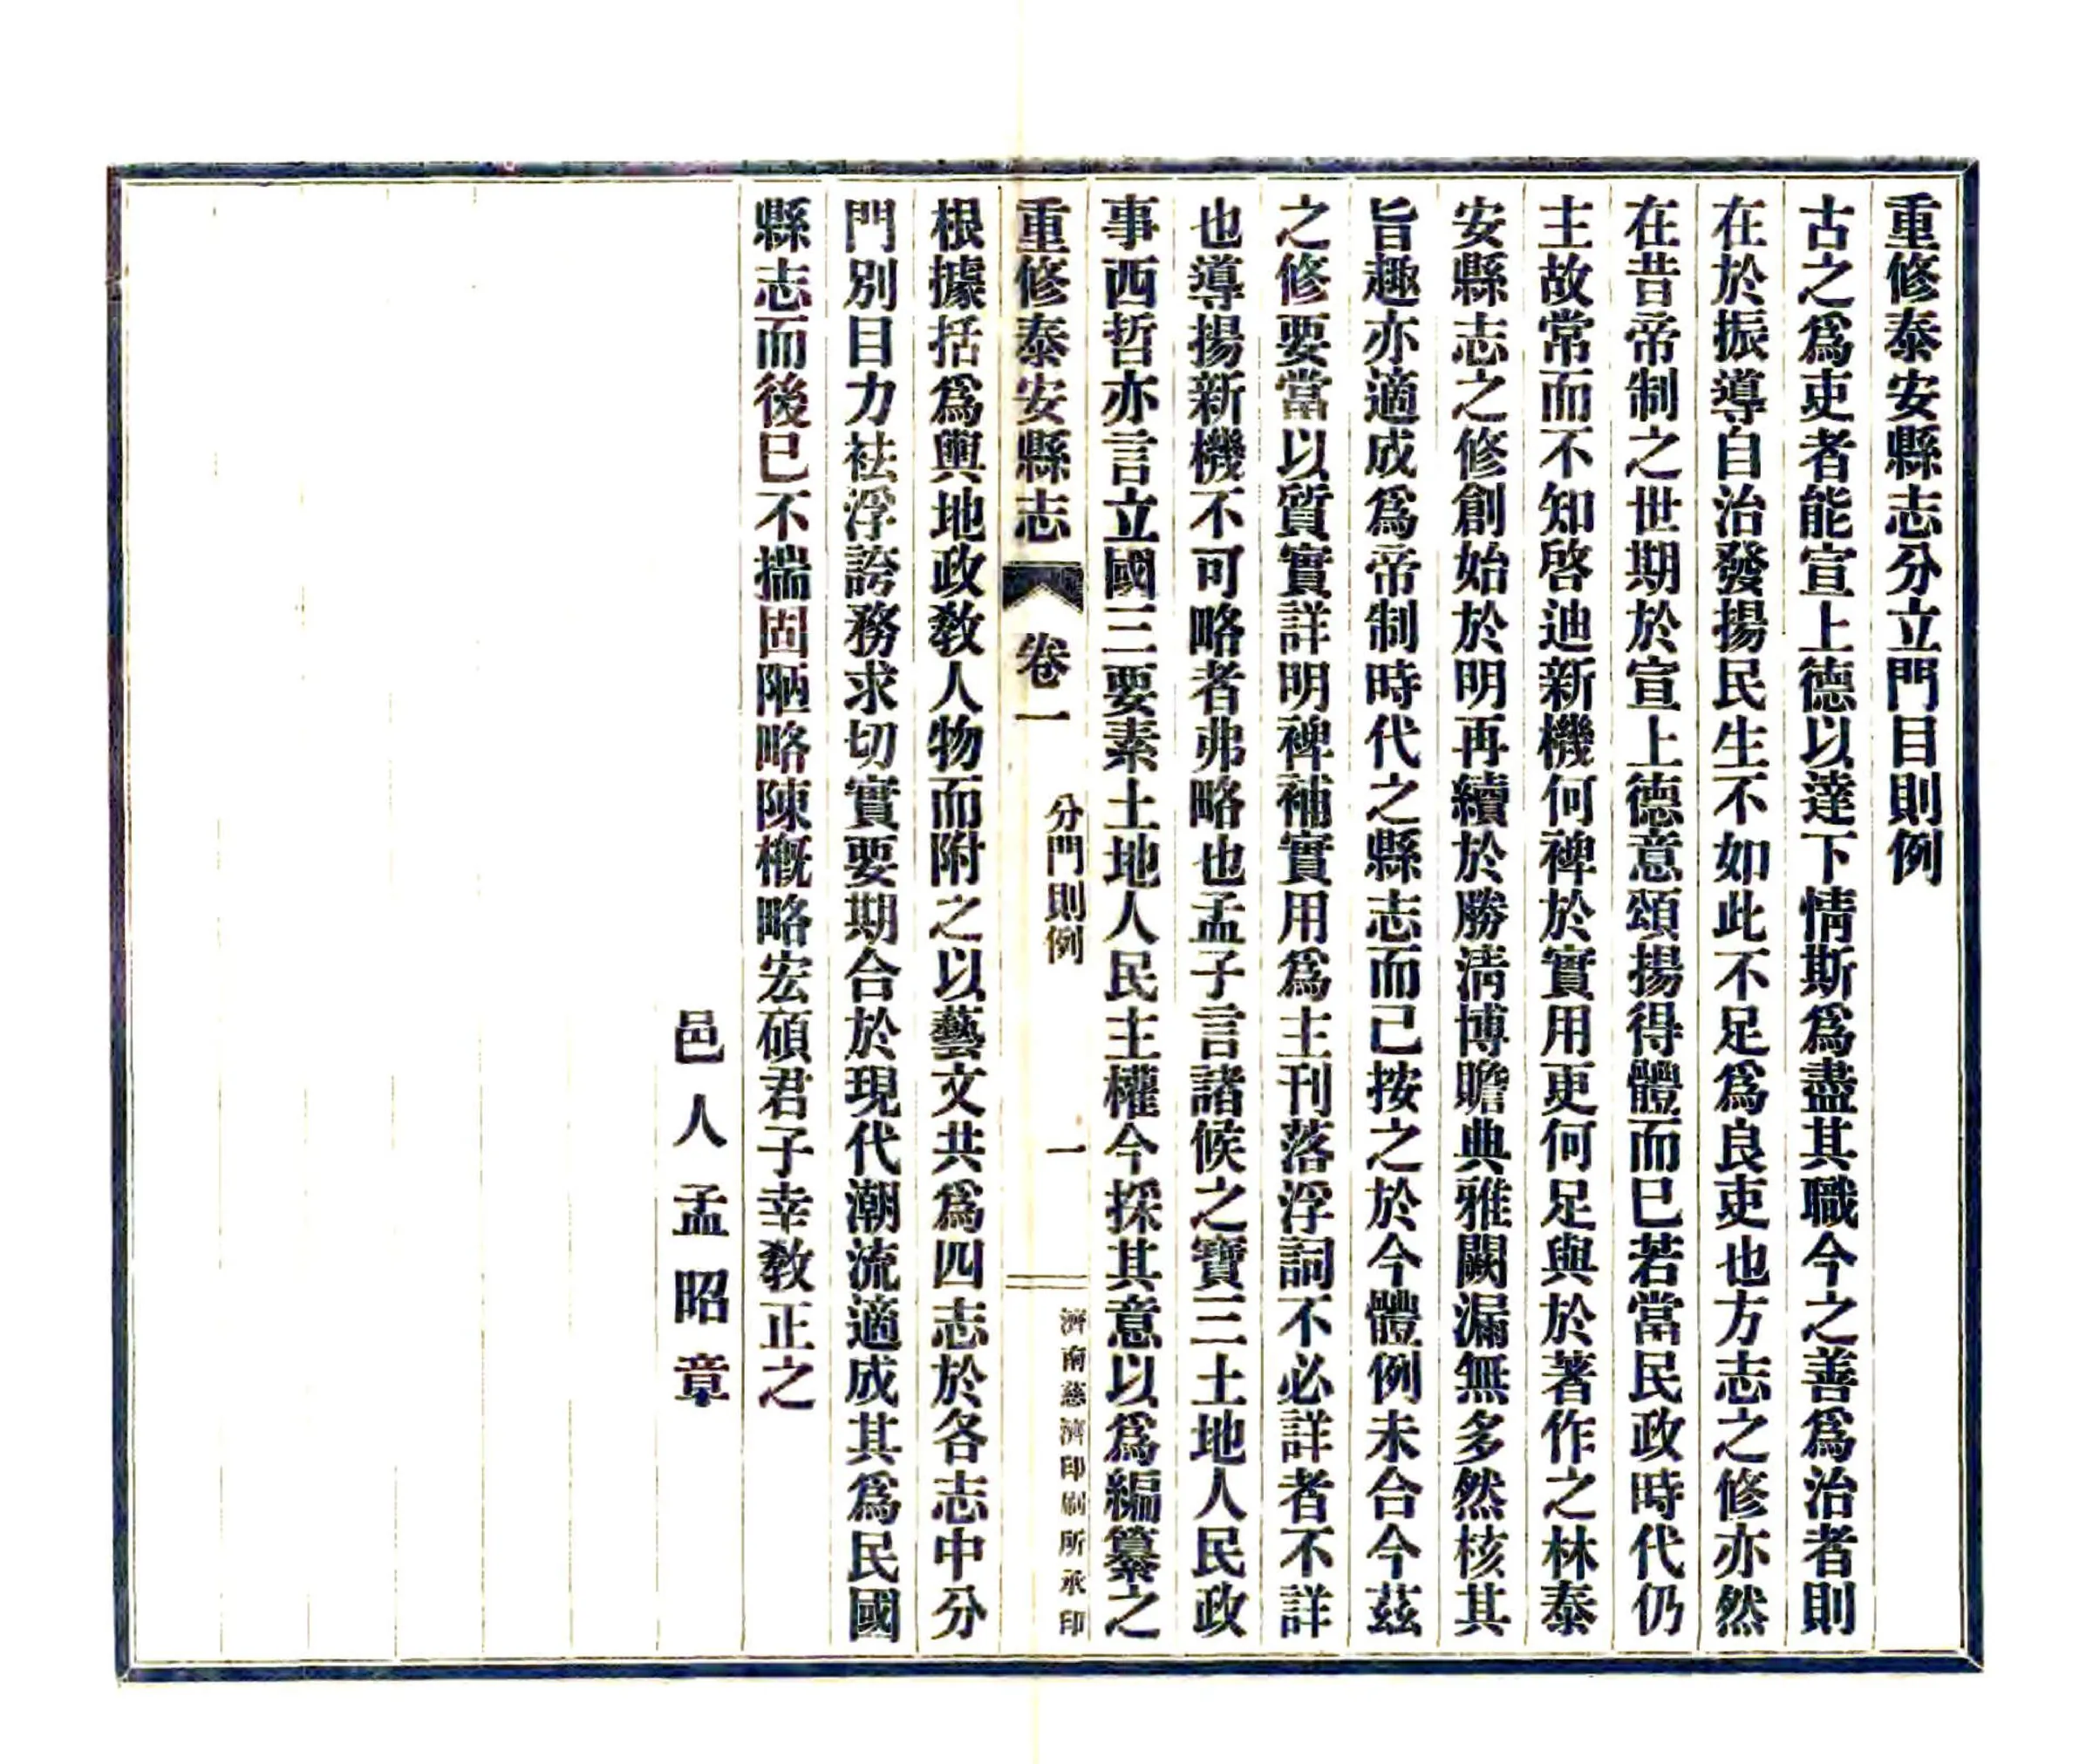 重修泰安縣志分立門目則例
古之爲吏者能宣上德以達下情斯爲盡其職今之善爲治者則
在於振導自治發揚民生不如此不足爲良吏也方志之修亦然
在昔帝制之世期於宣上德意頌揚得體而已若當民政時代仍
主故常而不知啓迪新機何裨於實用更何足與於著作之林泰
安縣志之修創始於明再續於勝淸博贍典雅闕漏無多然核其
旨趣亦適成爲帝制時代之縣志而已按之於今體例未合今茲
之修要當以質實詳明裨補實用爲主刊落浮詞不必詳者不詳
也導揚新機不可略者弗略也孟子言諸候之寶三土地人民政
事西哲亦言立國三要素土地人民主權今採其意以爲編纂之
重修泰安縣志 卷一 分門則例 一 濟南慈濟印刷所承印
根據括爲輿地政敎人物而附之以藝文共爲四志於各志中分
門別目力袪浮誇務求切實要期合於現代潮流適成其爲民國
縣志而後已不揣固陋略陳槪略宏碩君子幸敎正之
邑人孟昭章